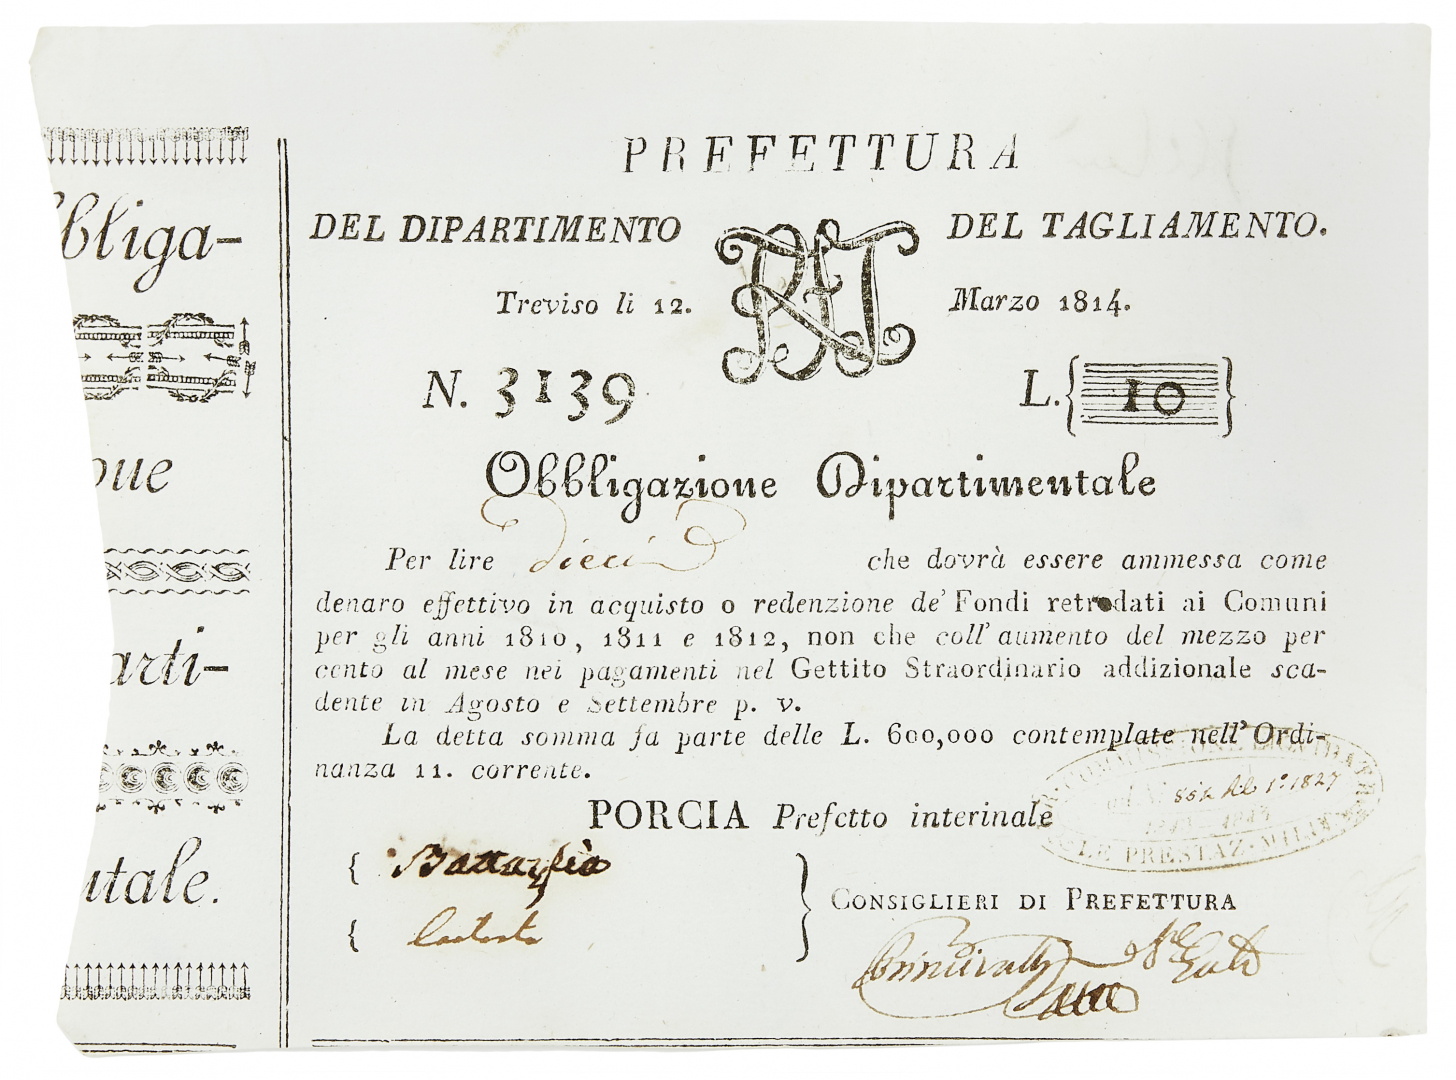 PREFETTURA
DEL DIPARTIMENTO DEL TAGLIAMENTO.
Treviso li 12. Marzo 1814.
N. 3139 L. { 10 }
Obbligazione Dipartimentale
Per lire dieci che dovrà essere ammessa come
denaro effettivo in acquisto o redenzione de' Fondi retrodati ai Comuni
per gli anni 1810, 1811 e 1812, non che coll'aumento del mezzo per
cento al mese nei pagamenti nel Gettito Straordinario addizionale sca-
dente in Agosto e Settembre p. v.
La detta somma fa parte delle L. 600,000 contemplate nell'Ordi-
nanza 11. corrente.
PORCIA Prefetto interinale
{ Battaglia
{
} CONSIGLIERI DI PREFETTURA
bbliga-
oue
arti-
ntale.
COMMISSIONE
1827
LE PRESTAZ. MILIT